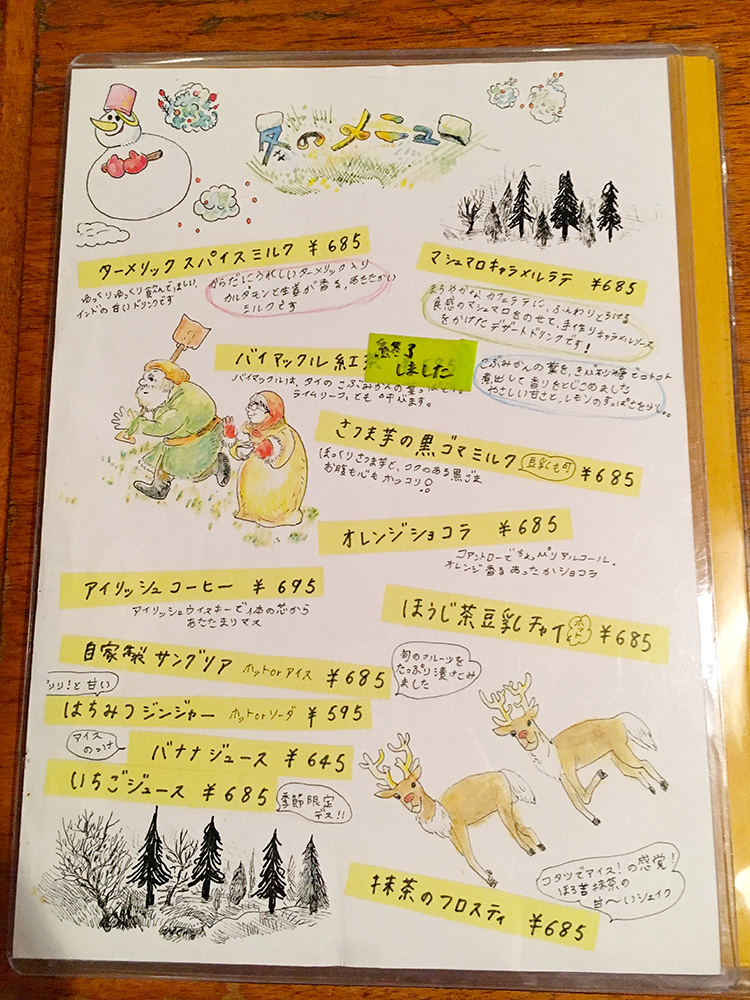 冬のメニュー
ターメリック スパイスミルク ￥685
ゆっくりゆっくり飲んでほしい、
インドの甘いドリンクです
からだにうれしいターメリック入り
カルダモンと生姜が香る、あたたかい
ミルクです
マシュマロキャラメルラテ ￥685
まろやかなカフェラテに、ふんわりとろける
食感のマシュマロをのせて、手作りキャラメルソース
をかけた デザートドリンクです!
バイマックル 紅
終了
しました
バイマックルは、タイの こぶみかんの葉
ライムリーフ とも 呼びます。
こぶみかんの 葉を、きび砂糖でコトコト
煮出して 香りをとじこめました
やさしい甘さと、レモンのすっぱさを
さつま芋の黒ゴマミルク 豆乳も可 ￥685
ほっくりさつま芋と、コクのある黒ごま
お腹も心も ホッコリ
オレンジショコラ ￥685
コアントローで ちょっぴりアルコール。
オレンジ香る あったかショコラ
アイリッシュコーヒー ￥695
アイリッシュウイスキーで 体の芯から
あたたまりマス
ほうじ茶豆乳チャイ ホット ￥685
自家製 サングリア ホットorアイス ￥685
旬のフルーツを
たっぷり漬けこみ
ました
リリ!と 甘い
はちみつジンジャー ホットorソーダ ￥595
アイス
のっけ
バナナジュース ￥645
いちごジュース ￥685
季節限定
デス!!
抹茶のフロスティ ￥685
コタツでアイス!の感覚!
ほろ苦抹茶の
甘〜いシェイク